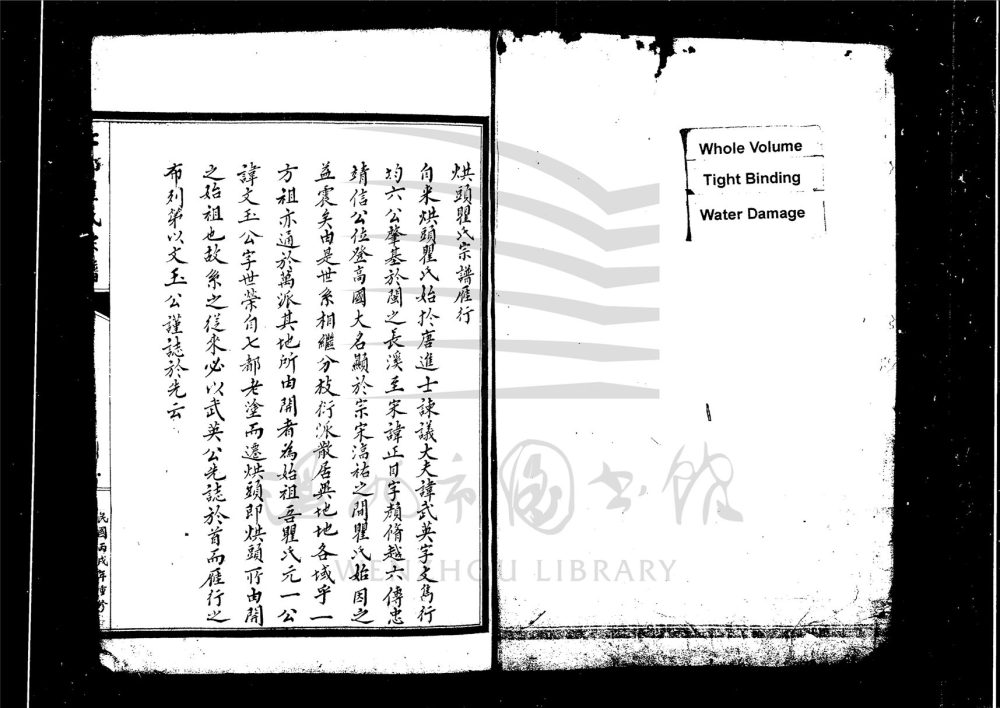 Whole Volume
Tight Binding
Water Damage
烘頭瞿氏宗譜雁行
自來烘頭瞿氏始於唐進士諫議大夫諱武英字文雋行
均六公肇基於閩之長溪至宋諱正目字顏脩越六傳忠
靖信公位登高國大名顯於宗宋淳祐之間瞿氏始因之
益震矣由是世系相繼分枝衍派散居與地地各域乎一
方祖亦通於萬派其地所由開者為始祖吾瞿氏元一公
諱文玉公字世榮自七都老塗而遷烘頭即烘頭所由開
之始祖也故系之從來必以武英公先誌於首而雁行之
布列第以文玉公謹誌於先云
民國丙戌年重修
温州市图书馆
WENZHOU LIBRARY